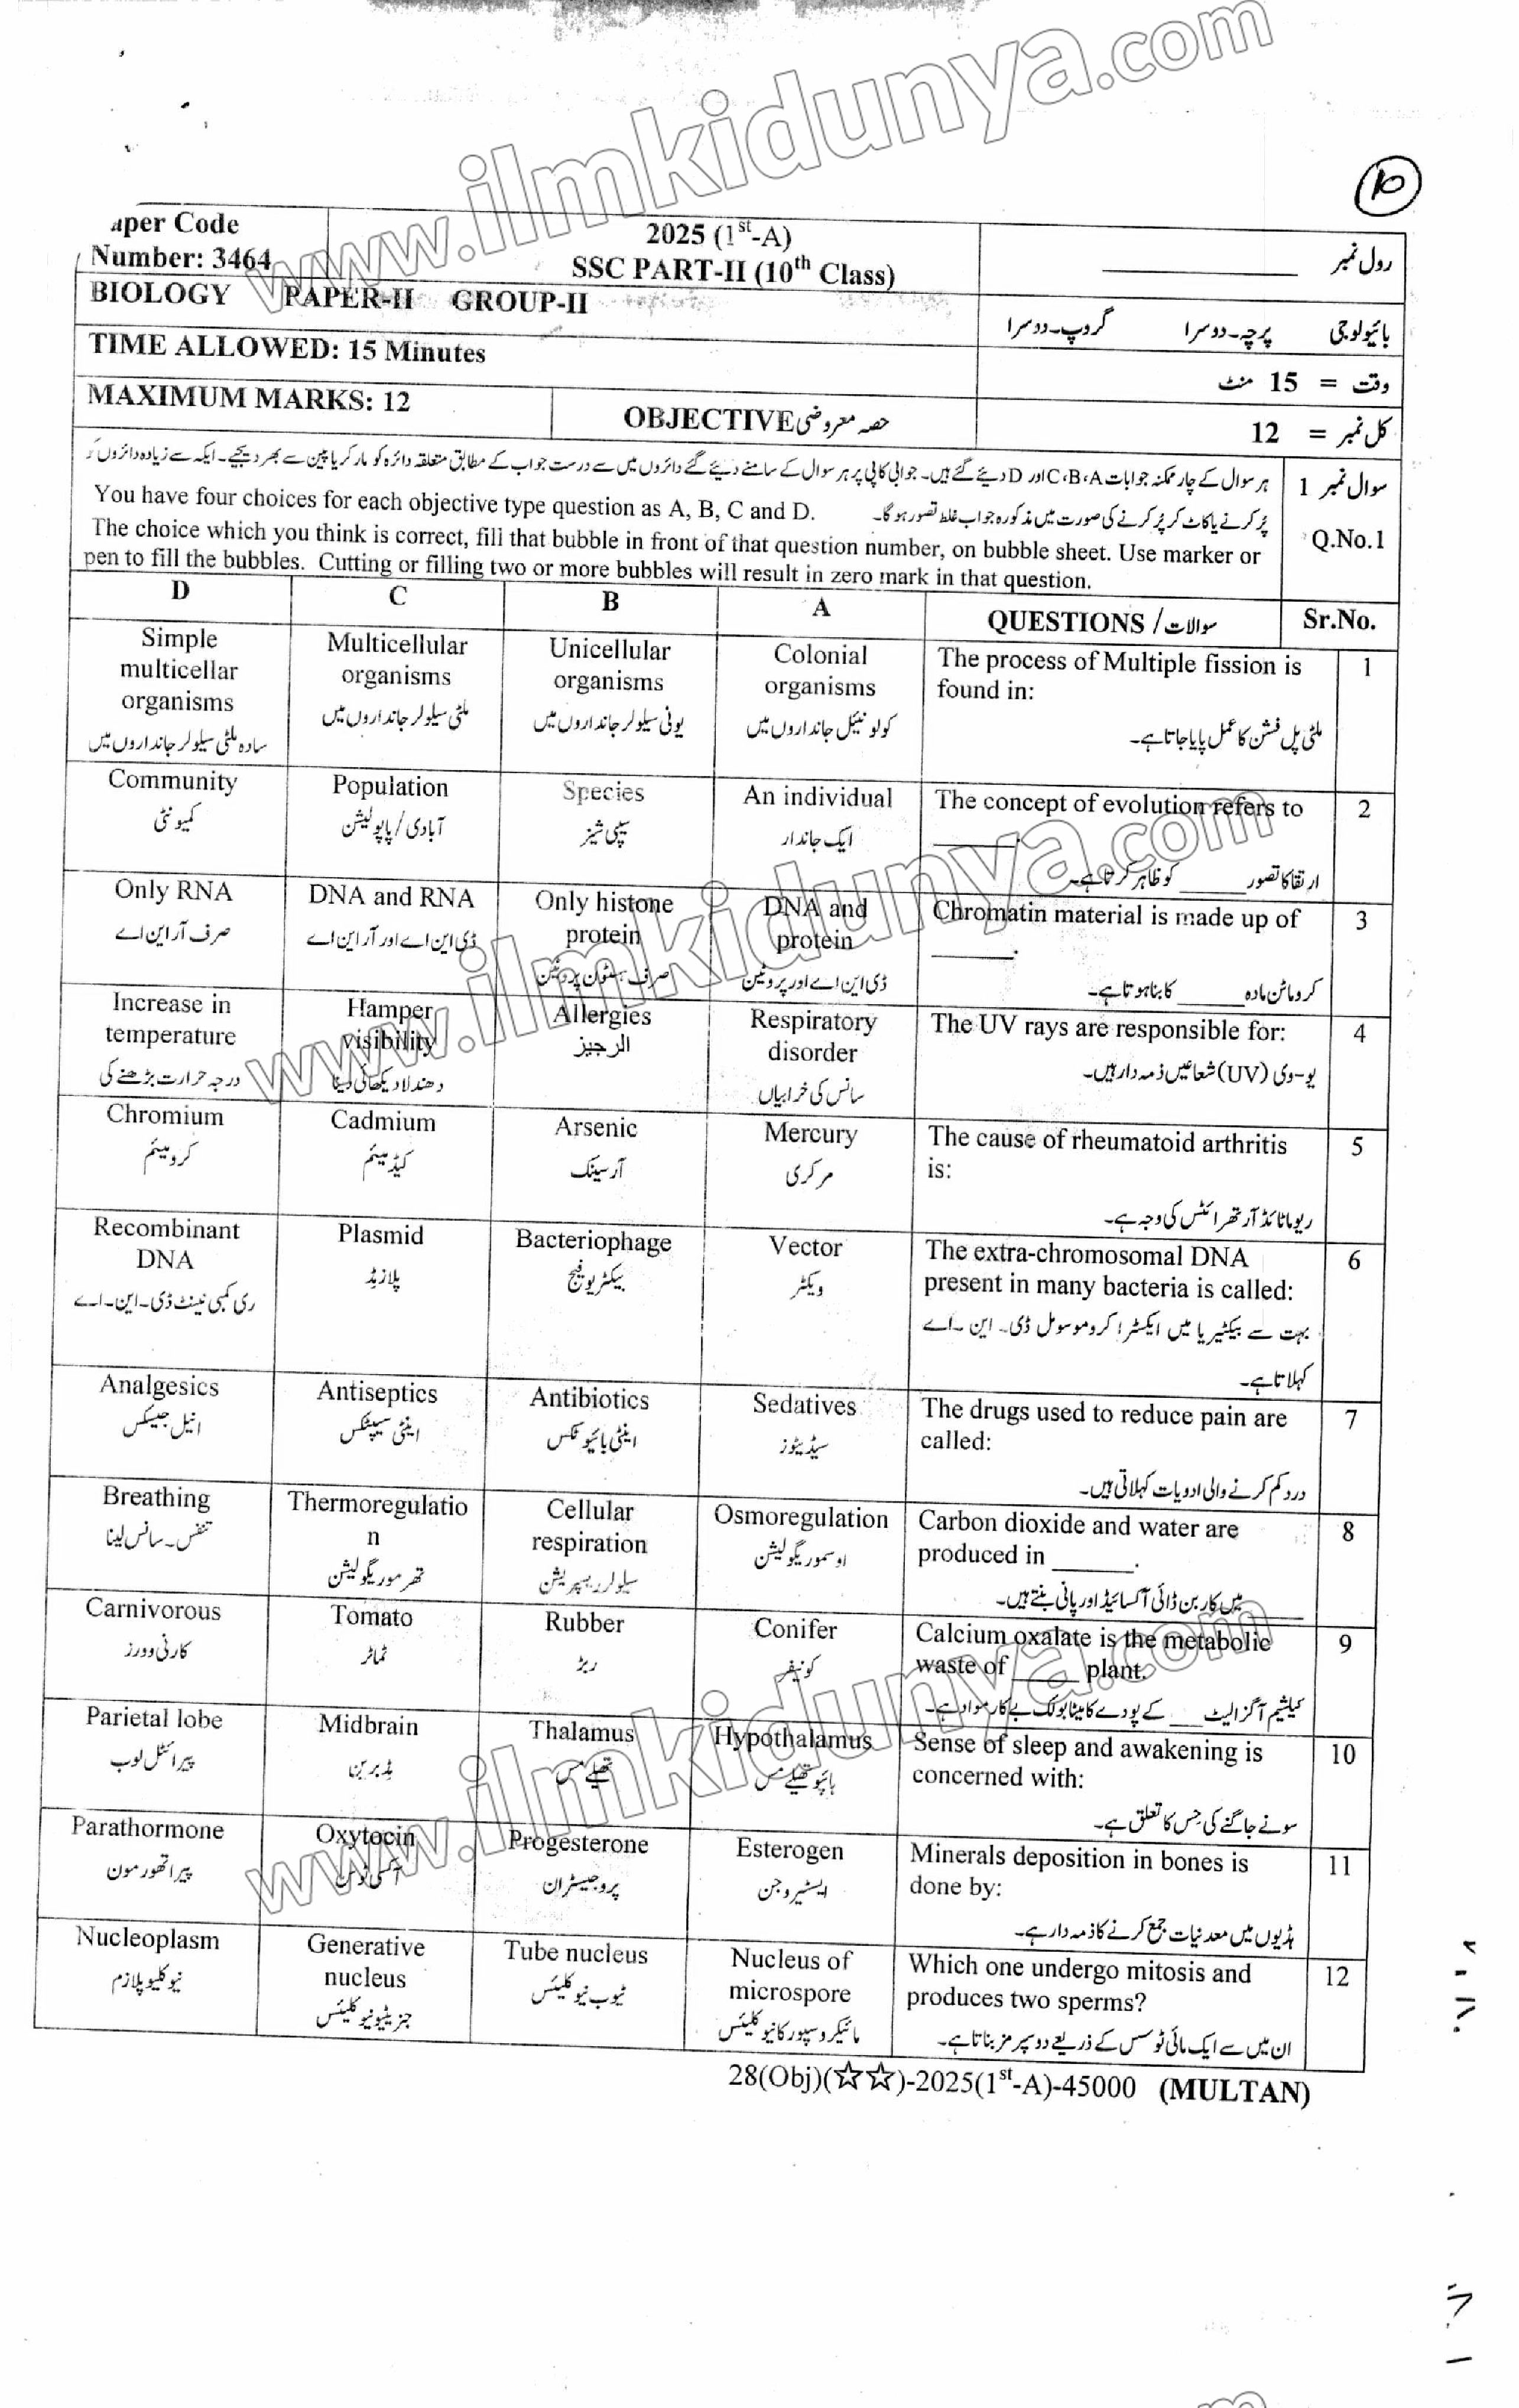 10
aper Code
Number: 3464
2025 (1st-A)
SSC PART-II (10th Class)
رول نمبر ____________
BIOLOGY PAPER-II GROUP-II
بائیولوجی پرچہ۔دوسرا گروپ۔دوسرا
TIME ALLOWED: 15 Minutes
وقت = 15 منٹ
MAXIMUM MARKS: 12
OBJECTIVE حصہ معروضی
کل نمبر = 12
سوال نمبر 1
Q.No.1
ہر سوال کے چار ممکنہ جوابات A، B، C اور D دیئے گئے ہیں۔ جوابی کاپی پر ہر سوال کے سامنے دیئے گئے دائروں میں سے درست جواب کے مطابق متعلقہ دائرہ کو مارکر یا پین سے بھر دیجیے۔ ایک سے زیادہ دائروں
پُر کرنے یا کاٹ کر پُر کرنے کی صورت میں مذکورہ جواب غلط تصور ہو گا۔
You have four choices for each objective type question as A, B, C and D.
The choice which you think is correct, fill that bubble in front of that question number, on bubble sheet. Use marker or
pen to fill the bubbles. Cutting or filling two or more bubbles will result in zero mark in that question.
D C B A QUESTIONS / سوالات Sr.No.
Simple
multicellar
organisms
سادہ ملٹی سیلولر جانداروں میں
Multicellular
organisms
ملٹی سیلولر جانداروں میں
Unicellular
organisms
یونی سیلولر جانداروں میں
Colonial
organisms
کولونیئل جانداروں میں
The process of Multiple fission is
found in:
ملٹی پل فشن کا عمل پایا جاتا ہے۔
1
Community
کمیونٹی
Population
آبادی/پاپولیشن
Species
سپی شیز
An individual
ایک جاندار
The concept of evolution refers to
______.
ارتقا کا تصور ______ کو ظاہر کرتا ہے۔
2
Only RNA
صرف آر این اے
DNA and RNA
ڈی این اے اور آر این اے
Only histone
protein
صرف ہسٹون پروٹین
DNA and
protein
ڈی این اے اور پروٹین
Chromatin material is made up of
______.
کروماٹن مادہ ______ کا بنا ہوتا ہے۔
3
Increase in
temperature
درجہ حرارت بڑھنے کی
Hamper
visibility
دھندلا دیکھائی دینا
Allergies
الرجیز
Respiratory
disorder
سانس کی خرابیاں
The UV rays are responsible for:
یو-وی (UV) شعاعیں ذمہ دار ہیں۔
4
Chromium
کرومیئم
Cadmium
کیڈمیئم
Arsenic
آرسینک
Mercury
مرکری
The cause of rheumatoid arthritis
is:
ریوماٹائڈ آرتھرائٹس کی وجہ ہے۔
5
Recombinant
DNA
ری کمبی نینٹ ڈی۔این۔اے
Plasmid
پلازمڈ
Bacteriophage
بیکٹریوفیج
Vector
ویکٹر
The extra-chromosomal DNA
present in many bacteria is called:
بہت سے بیکٹیریا میں ایکسٹرا کروموسومل ڈی۔ این ۔اے
کہلاتا ہے۔
6
Analgesics
انیل جیسکس
Antiseptics
اینٹی سیپٹکس
Antibiotics
اینٹی بائیوٹکس
Sedatives
سیڈیٹوز
The drugs used to reduce pain are
called:
درد کم کرنے والی ادویات کہلاتی ہیں۔
7
Breathing
تنفس۔سانس لینا
Thermoregulatio
n
تھرموریگولیشن
Cellular
respiration
سیلولر ریسپریشن
Osmoregulation
اوسموریگولیشن
Carbon dioxide and water are
produced in ______.
______ میں کاربن ڈائی آکسائیڈ اور پانی بنتے ہیں۔
8
Carnivorous
کارنی وورز
Tomato
ٹماٹر
Rubber
ربڑ
Conifer
کونیفر
Calcium oxalate is the metabolic
waste of _____ plant.
کیلشیم آگزالیٹ ___ کے پودے کا میٹابولک بے کار مواد ہے۔
9
Parietal lobe
پیرائٹل لوب
Midbrain
مڈبرین
Thalamus
تھیلے مس
Hypothalamus
ہائپو تھیلے مس
Sense of sleep and awakening is
concerned with:
سونے جاگنے کی جس کا تعلق ہے۔
10
Parathormone
پیراتھورمون
Oxytocin
آکسی ٹوسن
Progesterone
پروجیسٹران
Esterogen
ایسٹیروجن
Minerals deposition in bones is
done by:
ہڈیوں میں معدنیات جمع کرنے کا ذمہ دار ہے۔
11
Nucleoplasm
نیوکلیوپلازم
Generative
nucleus
جنریٹیو نیوکلیئس
Tube nucleus
ٹیوب نیوکلیئس
Nucleus of
microspore
مائیکروسپور کا نیوکلیئس
Which one undergo mitosis and
produces two sperms?
ان میں سے ایک مائی ٹوسس کے ذریعے دو سپرمز بناتا ہے۔
12
28(Obj)(☆☆)-2025(1st-A)-45000 (MULTAN)
www.ilmkidunya.com
www.ilmkidunya.com
www.ilmkidunya.com